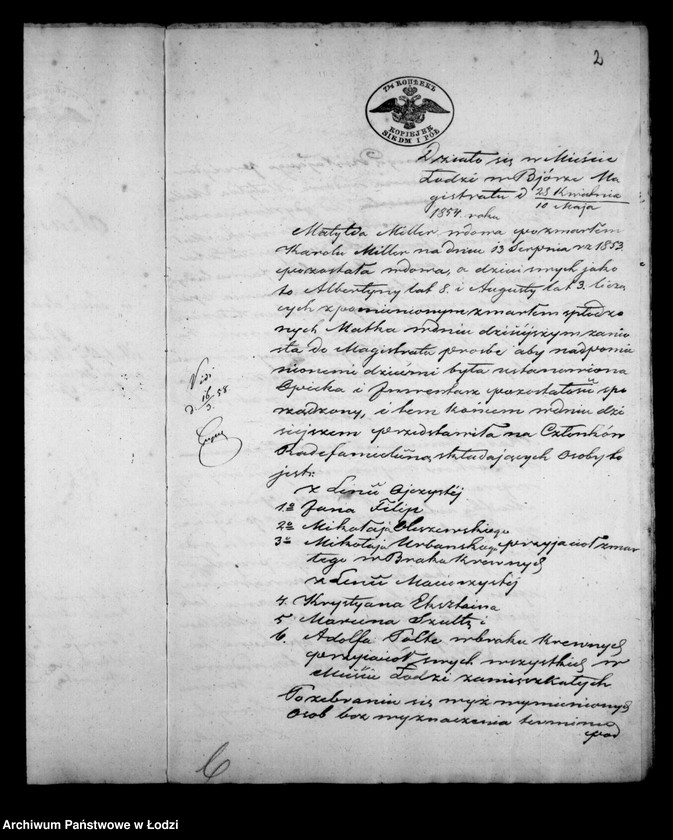 2
7½ КОПѢЕКЪ
KOPIEJEK
SIEDM I PÓŁ
Działo się w Mieście
Łodzi w Biórze Ma
gistratu d 28 Kwietnia
10 Maja
1854 roku
Matylda Miller wdowa po zmarłem
Karolu Miller na dniu 13 Sierpnia rz 1853
pozostała wdowa, a dzieci swych jako
to Albertyny lat 8. i Augusty lat 3. liczą
cych z pomienionym zmarłem spłodzo
nych Matka w dniu dzisiejszym zanio
sła do Magistratu prośbę aby nad pomie
nionemi dziećmi była ustanowiona
Opieka i Inwentarz pozostałości spo
rządzony, i tem końcem w dniu dzi
siejszem przedstawiła na Członków
Rady familijną składających Osoby to
jest:
z Linii Ojczystej
1º Jana Filip
2º Mikołaja Olszewskiego
3º Mikołaja Urbanskiego przyjaciół zmar
łego w Braku krewnych
z Linii Macierzystej
4. Krystyana Eksztaina
5 Marcina Szultz i
6. Adolfa Tölke w braku krewnych
przyjaciół swych wszystkich w
Mieście Łodzi zamieszkałych
Po zebraniu się wyż wymienionych
Osob bez wyznaczenia terminu
pod
Vidi
d 16/3. 58
Archiwum Państwowe w Łodzi